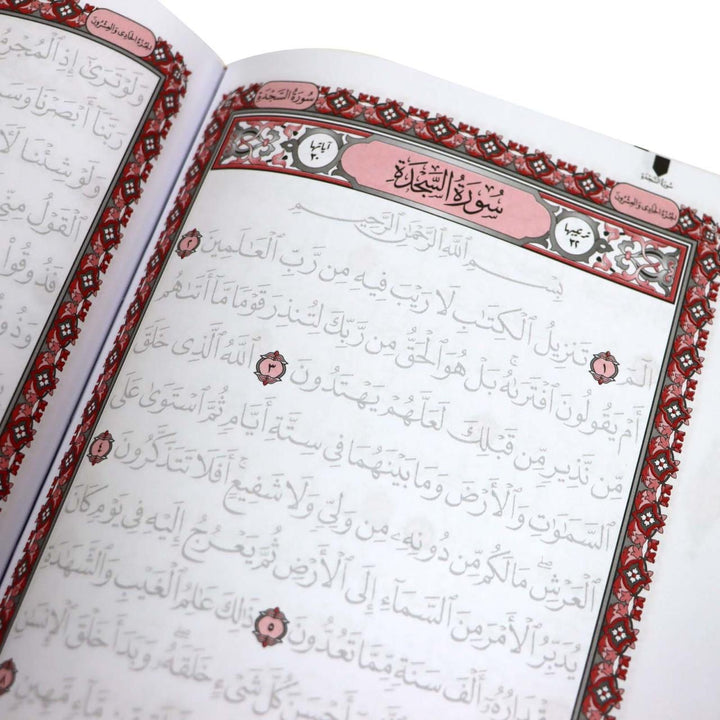 سُورَةُ السَّجْدَةِ
الجُزْءُ الحَادِي وَالعِشْرُونَ
سُورَةُ السَّجْدَةِ
ترتيبها ٣٢
سُورَةُ السَّجْدَةِ
آياتها ٣٠
بِسْمِ ٱللَّهِ ٱلرَّحْمَٰنِ ٱلرَّحِيمِ
الٓمٓ ١ تَنزِيلُ ٱلْكِتَٰبِ لَا رَيْبَ فِيهِ مِن رَّبِّ ٱلْعَٰلَمِينَ ٢
أَمْ يَقُولُونَ ٱفْتَرَىٰهُ ۚ بَلْ هُوَ ٱلْحَقُّ مِن رَّبِّكَ لِتُنذِرَ قَوْمًا مَّآ أَتَىٰهُم
مِّن نَّذِيرٍ مِّن قَبْلِكَ لَعَلَّهُمْ يَهْتَدُونَ ٣ ٱللَّهُ ٱلَّذِى خَلَقَ
ٱلسَّمَٰوَٰتِ وَٱلْأَرْضَ وَمَا بَيْنَهُمَا فِى سِتَّةِ أَيَّامٍ ثُمَّ ٱسْتَوَىٰ عَلَى
ٱلْعَرْشِ ۖ مَا لَكُم مِّن دُونِهِۦ مِن وَلِىٍّ وَلَا شَفِيعٍ ۚ أَفَلَا تَتَذَكَّرُونَ ٤
يُدَبِّرُ ٱلْأَمْرَ مِنَ ٱلسَّمَآءِ إِلَى ٱلْأَرْضِ ثُمَّ يَعْرُجُ إِلَيْهِ فِى يَوْمٍ كَانَ
مِقْدَارُهُۥٓ أَلْفَ سَنَةٍ مِّمَّا تَعُدُّونَ ٥ ذَٰلِكَ عَٰلِمُ ٱلْغَيْبِ وَٱلشَّهَٰدَةِ
أَحْسَنَ كُلَّ شَىْءٍ خَلَقَهُۥ ۖ وَبَدَأَ خَلْقَ ٱلْإِنسَٰنِ
مِّن مَّآءٍ مَّهِينٍ ٨
الجُزْءُ الحَادِي وَالعِشْرُونَ
وَلَوْ تَرَىٰٓ إِذِ ٱلْمُجْرِمُ
رَبَّنَآ أَبْصَرْنَا وَسَمِ
وَلَوْ شِئْنَا لَأ
ٱلْقَوْلُ مِنِّى
فَذُوقُوا
وَذُو